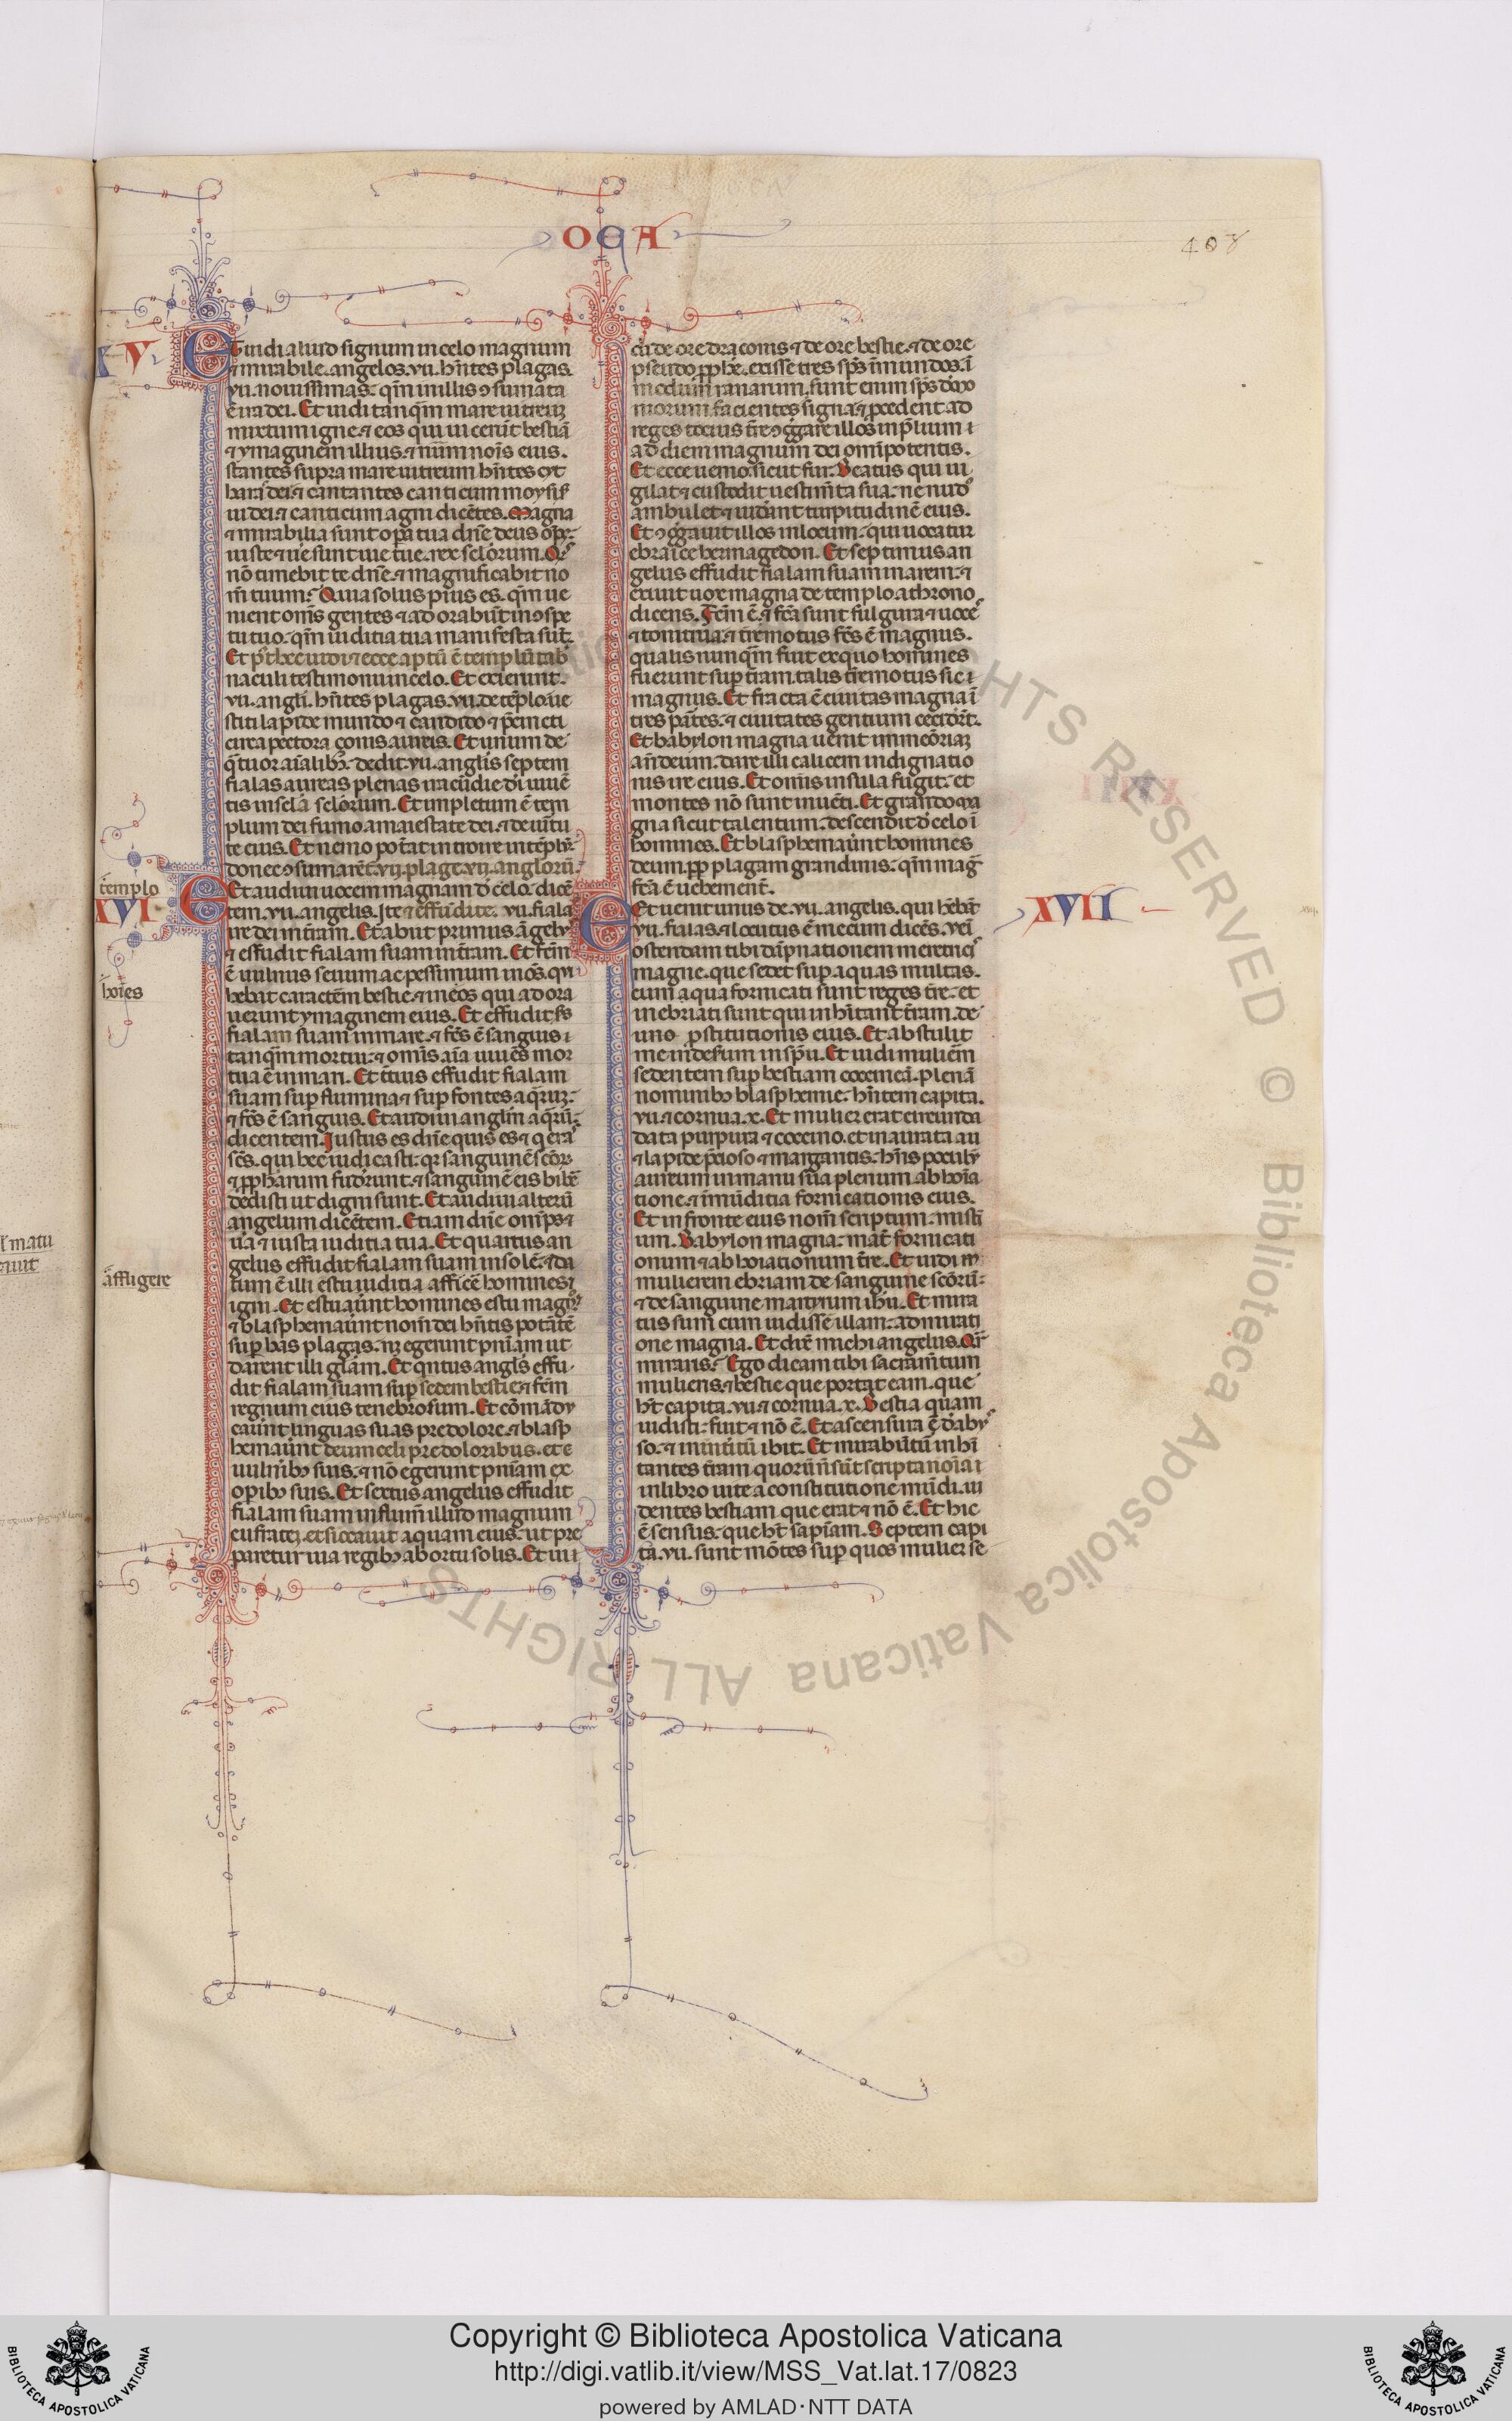 OCA
408
XV
Et uidi aliud signum in celo magnum
⁊ mirabile. angelos .vii. hñtes plagas
.vii. nouissimas. qm̄ in illis ꝯsumata
ē ira dei. Et uidi tanqm̄ mare uitreuꝫ
mixtum igne. ⁊ eos qui uicerūt bestiā
⁊ ymaginem illius. ⁊ num̄ nois eius.
stantes supra mare uitreum hñtes cyt
haras dei. ⁊ cantantes canticum moysis
ui dei. ⁊ canticum agni dicētes. Magna
⁊ mirabilia sunt opa tua dn̄e deus
iuste ⁊ ue sunt uie tue. rex sclorum. Qs
nō timebit te dn̄e. ⁊ magnificabit no
m̄ tuum? Quia solus pius es. qm̄ ue
nient om̄s gentes ⁊ adorabūt in ꝯspe
tu tuo. qm̄ iuditia tua manifesta sūt.
Et p̄t hec uidi ⁊ ecce aptū ē templū tab
naculi testimonii in celo. Et exierunt
.vii. angli. hñtes plagas .vii. de tēplo. ue
stiti lapide mundo ⁊ candido ⁊ p̄cincti
circa pectora çonis aureis. Et unum de
q̄tuor aīalibꝫ. dedit .vii. anglis septem
fialas aureas plenas iracūdie di uiuē
tis in scla sclorum. Et impletum ē tem
plum dei fumo a maiestate dei. ⁊ de uirtu
te eius. Et nemo potat introire in tēplū.
donec ꝯsumarēt .vii. plage .vii. anglorū.
templo
XVI
Et audiui uocem magnam d' celo. dicē
tem .vii. angelis. Ite ⁊ effūdite .vii. fiala
ire dei in t̄ram. Et abiit primus āgelꝰ
⁊ effudit fialam suam in t̄ram. Et fc̄m
ē uulnus seuum ac pessimum in oēs. qui
hoīes
hebāt caractēm bestie. ⁊ in eos qui adora
uerunt ymaginem eius. Et effudit sc̄s
fialam suam in mare. ⁊ fc̄s ē sanguis
tanqm̄ mortui. ⁊ om̄is aīa uiuēs mor
tua ē in mari. Et t̄tius effudit fialam
suam sup flumina ⁊ sup fontes aq̄ruꝫ.
⁊ fc̄s ē sanguis. Et audiui anglm̄ aq̄rū.
dicentem. Iustus es dn̄e quis es ⁊ q eras
sc̄s. qui hec iudicasti. qꝛ sanguinē sc̄oꝝ
⁊ ꝓphetarum fuderunt. ⁊ sanguinē eis bibē
dedisti ut digni sunt. Et audiui alterū
angelum dicētem. Etiam dn̄e om̄ps
ua ⁊ iusta iuditia tua. Et quartus an
gelus effudit fialam suam in solē. ⁊ da
affligere
tum ē illi estu iuditia afficē homines
igni. Et estuaūnt homines estu magno
⁊ blasphemaūnt nom̄ dei hn̄tis potātē
sup has plagas. nꝫ egerunt pn̄iam ut
darent illi glām. Et qntus angls effu
dit fialam suam sup sedem bestie. ⁊ fc̄m
regnum eius tenebrosum. Et cōmādu
cauūt linguas suas pre dolore. ⁊ blasp
hemaūnt deum celi pre doloribus. et e
uulnībꝫ suis. ⁊ nō egerunt pn̄iam ex
opibꝫ suis. Et sextus angelus effudit
fialam suam in flum̄ illud magnum
eufrateꝫ. et siccauit aquam eius. ut pre
paretur uia regibꝫ ab ortu solis. Et uidi
de ore draconis ⁊ de ore bestie. ⁊ de ore
pseudo ꝓphe. exisse tres sp̄s īmundos. ī
modum ranarum. sunt enim sp̄s demo
niorum facientes signa. ⁊ ꝓcedent ad
reges tocius t̄re ꝯgregare illos in p̄lium
ad diem magnum dei omīpotentis.
Et ecce uenio sicut fur. Beatus qui ui
gilat ⁊ custodit uestim̄ta sua. ne nudꝰ
ambulet ⁊ uideant turpitudinē eius.
Et ꝯg̃gauit illos in locum. qui uocatur
ebraice hermagedon. Et septimus an
gelus effudit fialam suam in aerem. ⁊
exiuit uox magna de templo a throno
dicens. Fc̄m ē. ⁊ fc̄a sunt fulgura ⁊ uoces
⁊ tonitrua. ⁊ t̄remotus fc̄s ē magnus.
qualis nunqm̄ fuit ex quo homines
fuerunt sup t̄ram. talis t̄remotus sic
magnus. Et fracta ē ciuitas magna ī
tres partes. ⁊ ciuitates gentium cecid̄rt.
Et babylon magna uenit in meōriaꝫ
an̄ deum. dare illi calicem indignatio
nis ire eius. Et om̄is insula fugit. et
montes nō sunt inuēti. Et grando ma
gna sicut talentum. descendit d' celo ī
homines. Et blasphemaūnt homines
deum. ꝓp plagam grandinis. qm̄ mag̃
fc̄a ē uehement̃.
XVII
Et uenit unus de .vii. angelis. qui hēbāt
.vii. fialas. ⁊ locutus ē mecum dicēs. veī
ostendam tibi dāpnationem meretricis
magne. que sedet sup aquas multas.
cum aqua fornicati sunt reges t̄re. et
inebriati sunt qui inhītant t̄ram. de
uino ꝓstitutionis eius. Et abstulit
me in desertum in sp̄u. Et uidi muliēm
sedentem sup bestiam coccineā. plenā
nominibꝫ blasphemie. hn̄tem capita
.vii. ⁊ cornua .x. Et mulier erat circunda
data purpura ⁊ coccino. et inaurata au
⁊ lapide p̄cioso ⁊ margaritis. hn̄s poculꝫ
aureum in manu sua plenum abhoīa
tione. ⁊ īmūditia fornicationis eius.
Et in fronte eius nom̄ scriptum. mist̄i
um. Babylon magna. mat̄ fornicati
onum ⁊ abhoīationum t̄re. Et uidi
mulierem ebriam de sanguine sc̄orū.
⁊ de sanguine martyrum ih̄u. Et mira
tus sum cum uidissē illam. admirati
one magna. Et dix̄ michi angelus. Qr̄
miraris? Ego dicam tibi sacram̄tum
mulieris. ⁊ bestie que portat eam. que
h̄t capita .vii. ⁊ cornua .x. Bestia quam
uidisti. fuit ⁊ nō ē. Et ascensura ē d' aby
so. ⁊ in int̄itū ibit. Et mirabūtū inhī
tantes t̄ram. quorū n̄ sūt scripta noīa
in libro uite a constitutione mūdi. ui
dentes bestiam que erat ⁊ nō ē. Et hic
ē sensus. que h̄t sapīam. Septem capi
ta .vii. sunt mōtes sup quos mulier se
matu
© Biblioteca Apostolica Vaticana ALL RIGHTS RESERVED
Copyright © Biblioteca Apostolica Vaticana
http://digi.vatlib.it/view/MSS_Vat.lat.17/0823
powered by AMLAD · NTT DATA
BIBLIOTECA APOSTOLICA VATICANA
BIBLIOTECA APOSTOLICA VATICANA